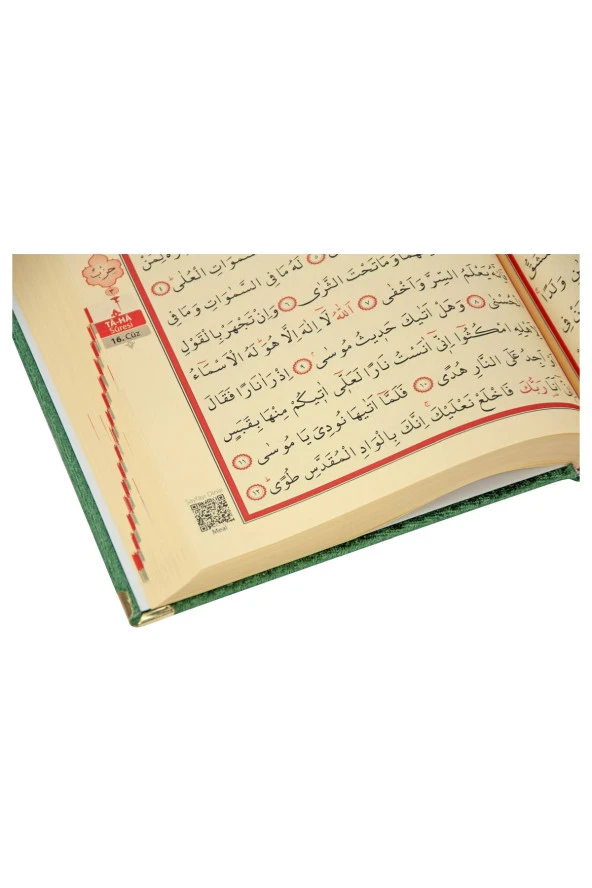 السَّمٰوَاتِ الْعُلٰى
لَهُ مَا فِي السَّمٰوَاتِ وَمَا فِي
وَمَا تَحْتَ الثَّرٰى ٦ وَاِنْ تَجْهَرْ بِالْقَوْلِ
يَعْلَمُ السِّرَّ وَاَخْفٰى ٧ اَللّٰهُ لَٓا اِلٰهَ اِلَّا هُوَ لَهُ الْاَسْمَٓاءُ
الْحُسْنٰى ٨ وَهَلْ اَتٰيكَ حَدِيثُ مُوسٰى ٩ اِذْ رَاٰ نَارًا فَقَالَ
امْكُثُٓوا اِنِّٓي اٰنَسْتُ نَارًا لَعَلِّٓي اٰتِيكُمْ مِنْهَا بِقَبَسٍ
اَجِدُ عَلَى النَّارِ هُدًى ١٠ فَلَمَّٓا اَتٰيهَا نُودِيَ يَا مُوسٰى ١١
اَنَا رَبُّكَ فَاخْلَعْ نَعْلَيْكَ اِنَّكَ بِالْوَادِ الْمُقَدَّسِ طُوًى ١٢
حزب
TÂ-HÂ
Sûresi
16. Cüz
Sayfayı Dinle
Meal